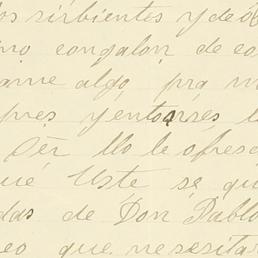 os sirbientes y de
no congalon de co
arme algo, pra m
pres y entonses l
Sèr llo le ofresc
ué Uste se qu
das de Don Pablo
eo que nesesita